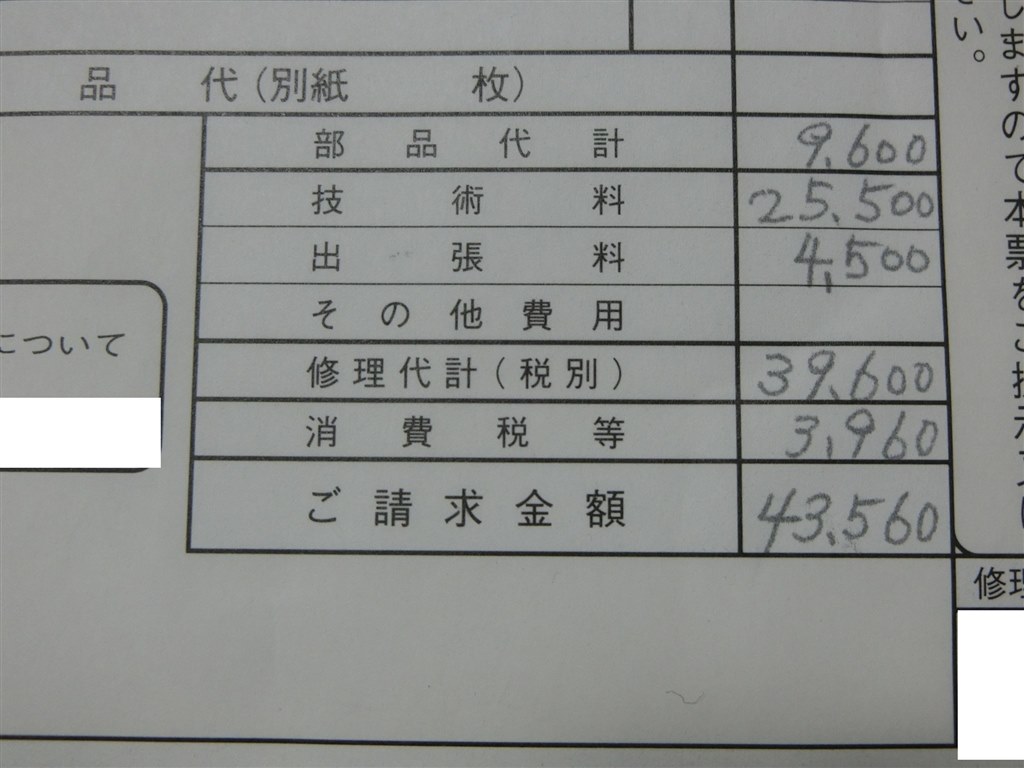 品 代(別紙 枚)
部品代計 9,600
技術料 25,500
出張料 4,500
その他費用
修理代計(税別) 39,600
消費税等 3,960
ご請求金額 43,560
について
さい。
しますので本票をご提示
修理